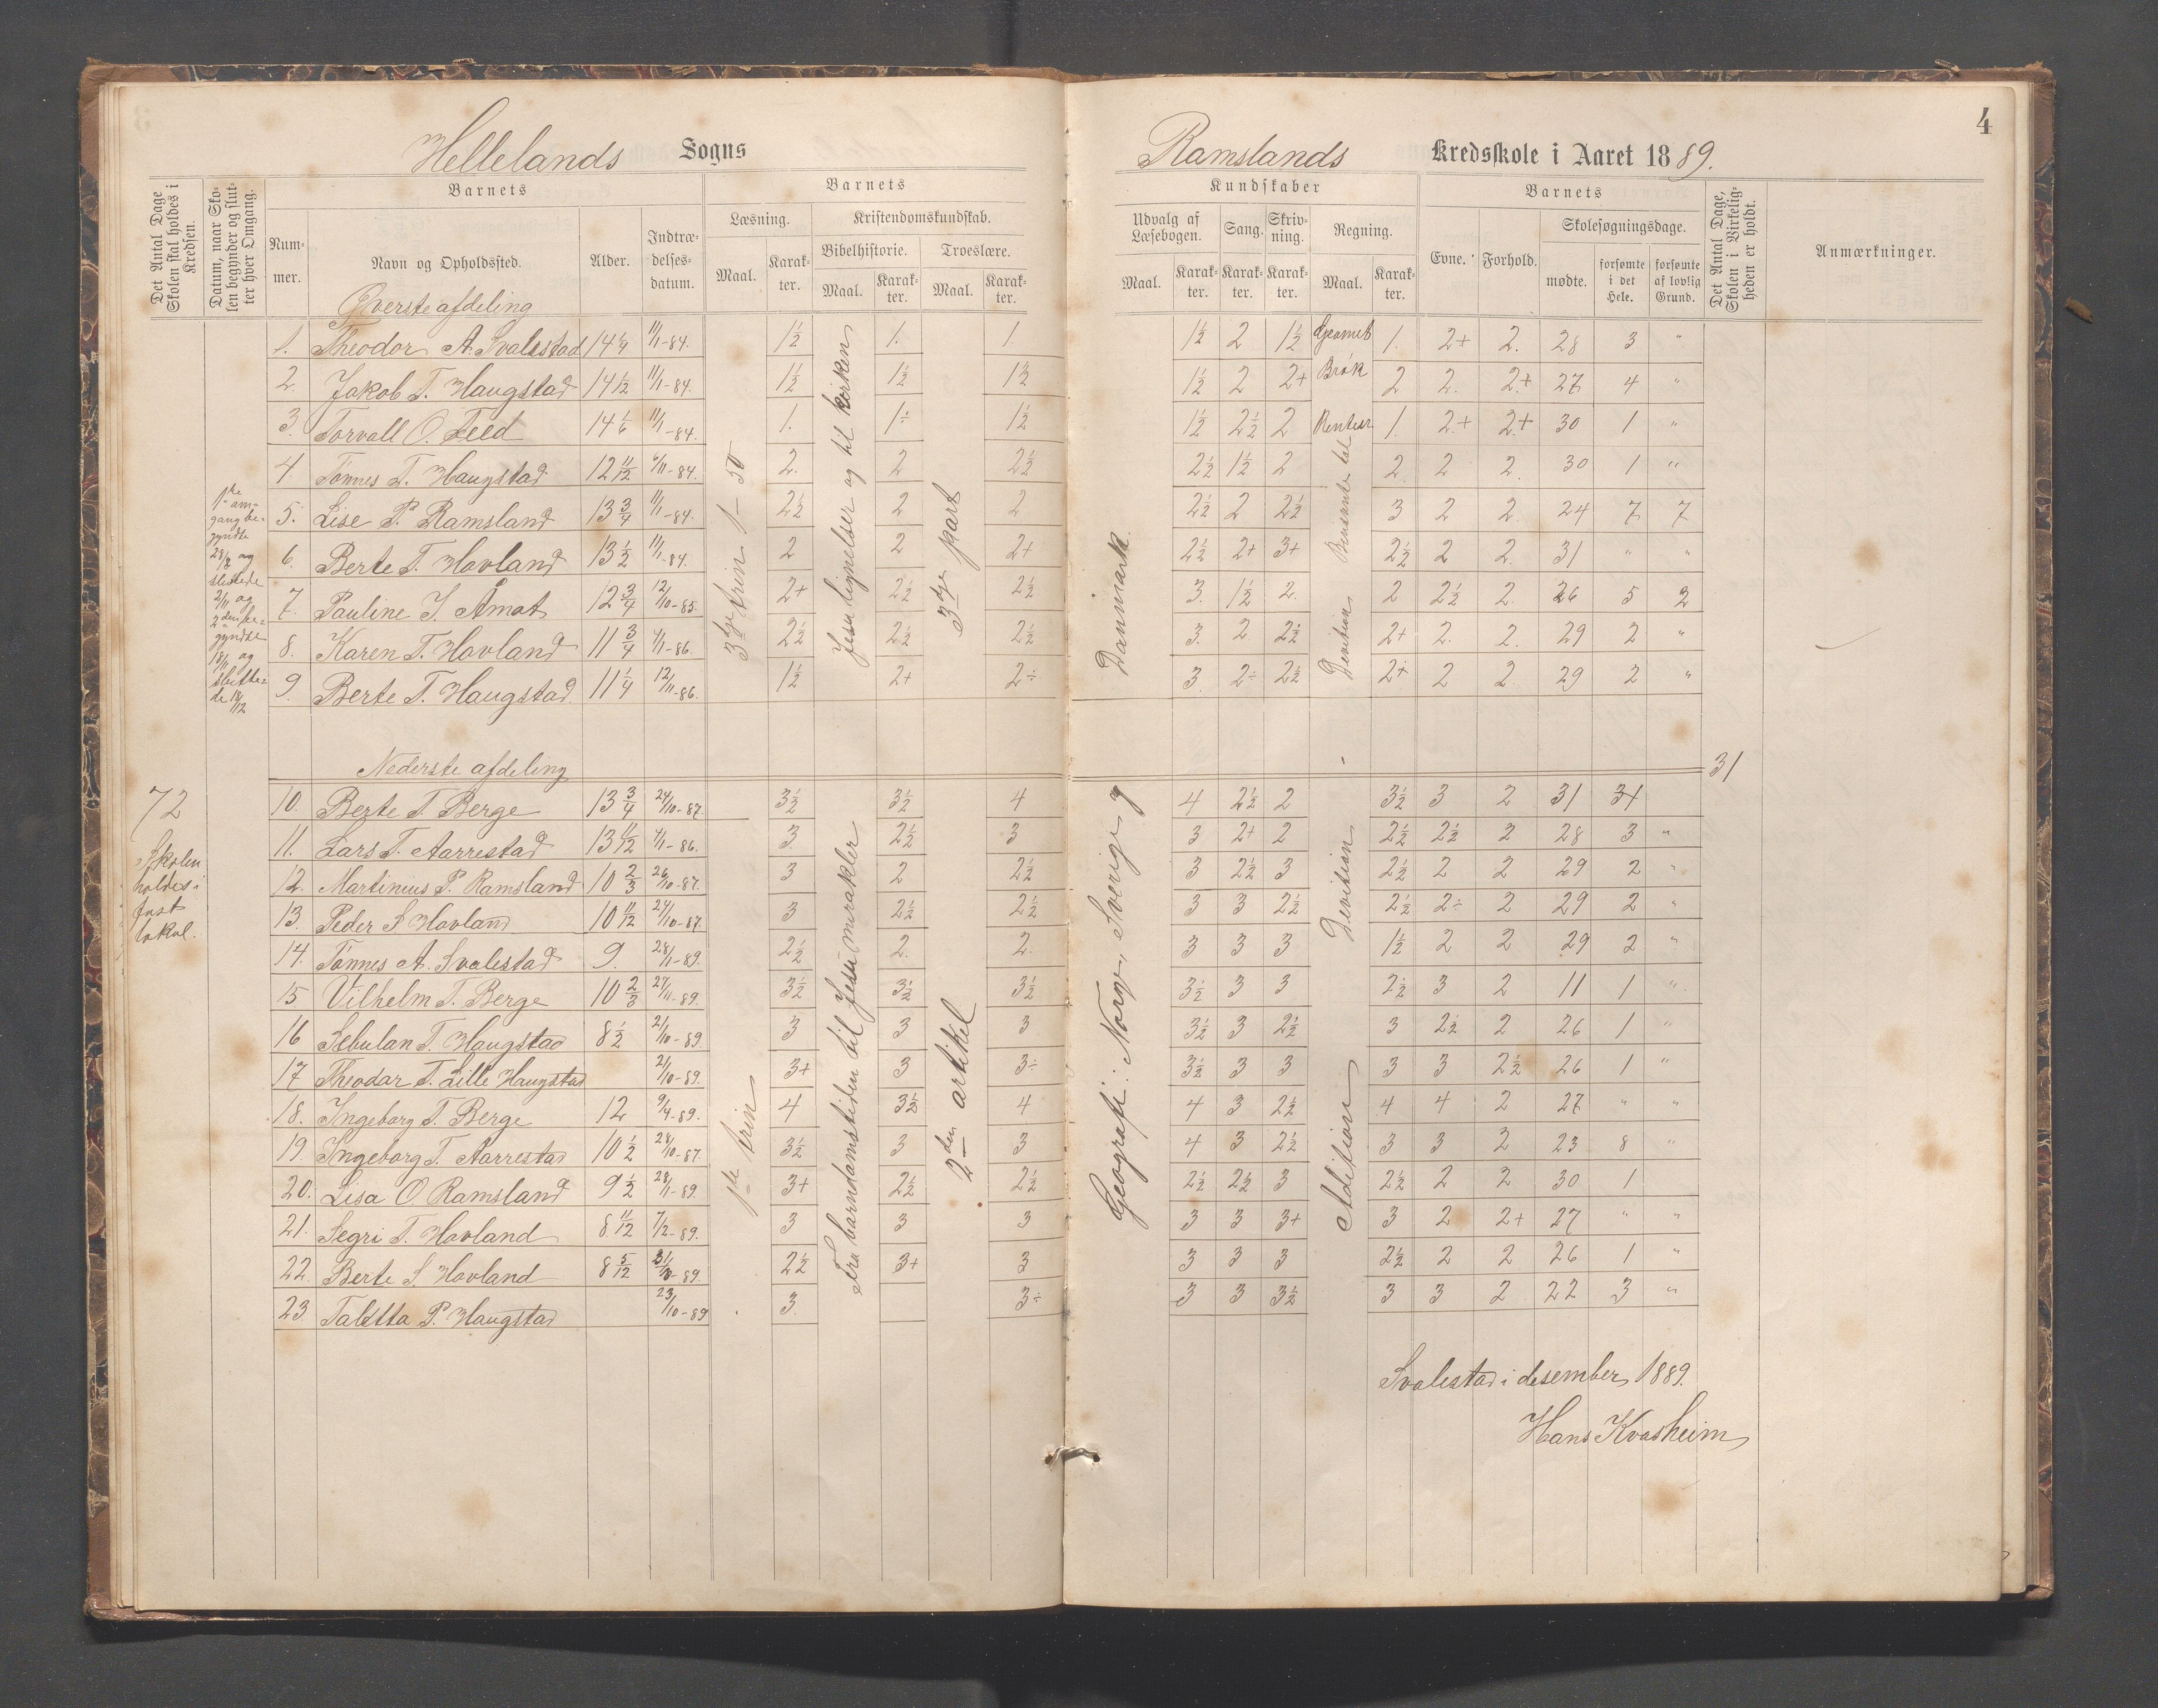 4
Hellelands Sogns
Ramslands Kredsskole i Aaret 1889.
Det Antal Dage Skolen skal holdes i Kredsen.
Datum, naar Skolen begynder og slutter hver Omgang.
Barnets
Nummer.
Navn og Opholdssted.
Alder.
Indtrædelsesdatum.
Barnets
Læsning.
Maal.
Karakter.
Kristendomskundskab.
Bibelhistorie.
Maal.
Karakter.
Troeslære.
Maal.
Karakter.
Kundskaber
Udvalg af Læsebogen.
Maal.
Karakter.
Sang.
Karakter.
Skrivning.
Karakter.
Regning.
Maal.
Karakter.
Barnets
Evne.
Forhold.
Skolesøgningsdage.
mødte.
forsømte i det Hele.
forsømte af lovlig Grund.
Det Antal Dage, Skolen i Virkeligheden er holdt.
Anmærkninger.
Øverste afdeling
1. Theodor A. Svalestad 14 1/4 11/1-84. 1½ 1. 1. 1½ 2 1½ 1. 2+ 2. 28 3 "
2. Jakob T. Haugstad 14 1/12 11/1-84. 1½ 1½ 1½ 1½ 2 2+ 2 2. 2+ 27 4 "
3. Torvall O. Leed 14 1/6 11/1-84. 1. 1÷ 1½ 1½ 2½ 2 1. 2+ 2+ 30 1 "
4 Tönnes T. Haugstad 12 11/12 4/11-84. 2. 2 2½ 2½ 1½ 2 2. 2 2. 30 1 "
5. Lise P. Ramsland 13 3/4 11/1-84. 2½ 2 2 2½ 2 2½ 3 2 2. 24 7 7
6. Berte T. Hovland 13 1/2 11/1-84. 2 2 2+ 2½ 2+ 3+ 2½ 2 2. 31 " "
7. Pauline J. Åmot 12 3/4 12/10-85. 2+ 2½ 2½ 3. 1½ 2. 2 2½ 2. 26 5 2
8. Karen T. Hovland 11 3/4 4/1-86. 2½ 2½ 2½ 3. 2 2½ 2+ 2. 2. 29 2 "
9. Berte T. Haugstad. 11 1/4 12/11-86. 1½ 2+ 2÷ 3. 2÷ 2½ 2+ 2 2. 29 2 "
1ste omgang begyndte 28/9 og sluttede 2/11 og 2den begyndte 18/11 og sluttede 18/12
3dje trin 1-50
Jesu lignelser og til kirken
3dje part
Danmark.
Geomet
Brök
Rentesr.
Benævnte tal
Devition
Nederste afdeling
31
72
Skolen holdes i fast lokal.
10. Berte T. Berge 13 3/4 24/10-87. 3½ 3½ 4 4 2½ 2 3½ 3 2 31 31
11. Lars T. Aarrestad 13 11/12 4/1-86. 3. 2½ 3 3 2+ 2 2½ 2½ 2 28 3 "
12. Martinius P. Ramsland 10 2/3 26/10-87. 3 2 2½ 3 2½ 3 2½ 2 2 29 2 "
13. Peder S. Hovland 10 11/12 24/10-87. 3 2½ 2½ 3 3 2½ 2½ 2÷ 2 29 2 "
14. Tönnes A. Svalestad 9. 28/1-89. 2½ 2. 2. 3 3 3 1½ 2 2 29 2 "
15 Vilhelm T. Berge 10 2/3 27/11-89. 3½ 3½ 3½ 3½ 3 3 2½ 3 2 11 1 "
16 Sebulan T. Haugstad 8 1/2 21/10-89. 3 3 3 3½ 3 2½ 3 2½ 2 26 1 "
17 Theodor T. Lille Haugstad 21/10-89. 3+ 3 3÷ 3½ 3 3 3 3 2½ 26 1 "
18. Ingeborg T. Berge 12 9/4-89. 4 3½ 4 4 3 2½ 4 4 2 27 " "
19. Ingeborg T. Aarrestad 10 1/2 28/10-87. 3½ 3 3 4 3 2½ 3 3 2 23 8 "
20. Lisa O. Ramsland 9 1/2 28/1-89. 3+ 2½ 2½ 2½ 2½ 3 2½ 2 2 30 1
21. Segri T. Hovland 8 11/12 7/2-89. 3 3 3 3 3 3+ 3 2 2+ 27 " "
22. Berte S. Hovland 8 5/12 -89. 2½ 3+ 3 3 3 3 2½ 2 2 26 1 "
23. Taletta P. Haugstad 23/10-89 3. 3÷ 3 3 3½ 3 3 2 22 3 "
1ste trin
Fra barndomstiden til Jesu mirakler
2den artikel
Geografi: Norge, Sverige og
Devition
Adition
Svalestad i desember 1889.
Hans Kvasheim